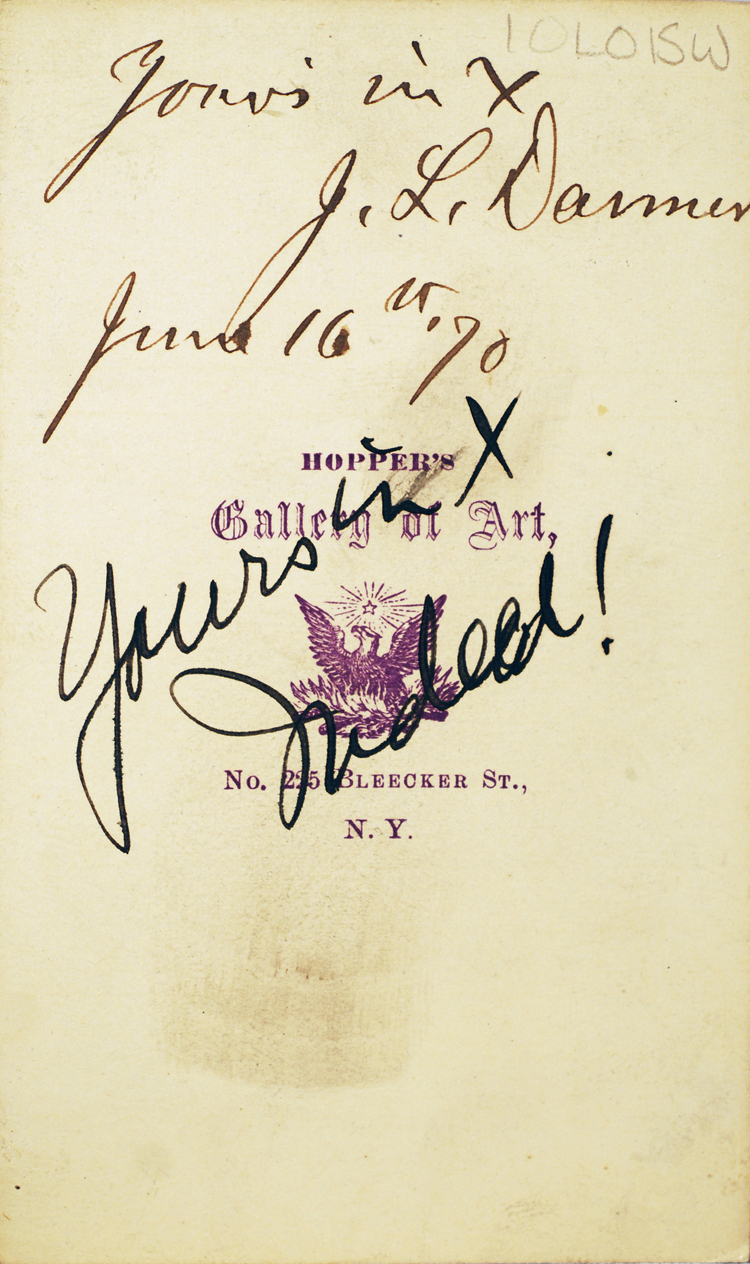 IOLOISW
Yours in X
J. L. Darmer
June 16th, 70
HOPPER'S
Gallery of Art,
Yours in X
Indeed!
No. 225 BLEECKER ST.,
N. Y.